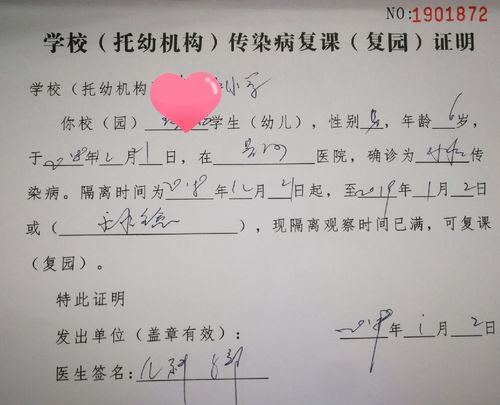 NO:1901872
学校（托幼机构）传染病复课（复园）证明
学校（托幼机构 小学
你校（园） 学生（幼儿），性别男，年龄6岁，
于 年 月 日，在 医院，确诊为 传
染病。隔离时间为2018年12月 日起，至2019年1月2日
或（ ），现隔离观察时间已满，可复课
（复园）。
特此证明
发出单位（盖章有效）：
年1月2日
医生签名：儿科